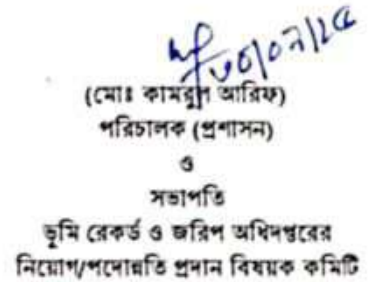 ৩০/০৭/২৫
(মোঃ কামরুল আরিফ)
পরিচালক (প্রশাসন)
ও
সভাপতি
ভূমি রেকর্ড ও জরিপ অধিদপ্তরের
নিয়োগ/পদোন্নতি প্রদান বিষয়ক কমিটি